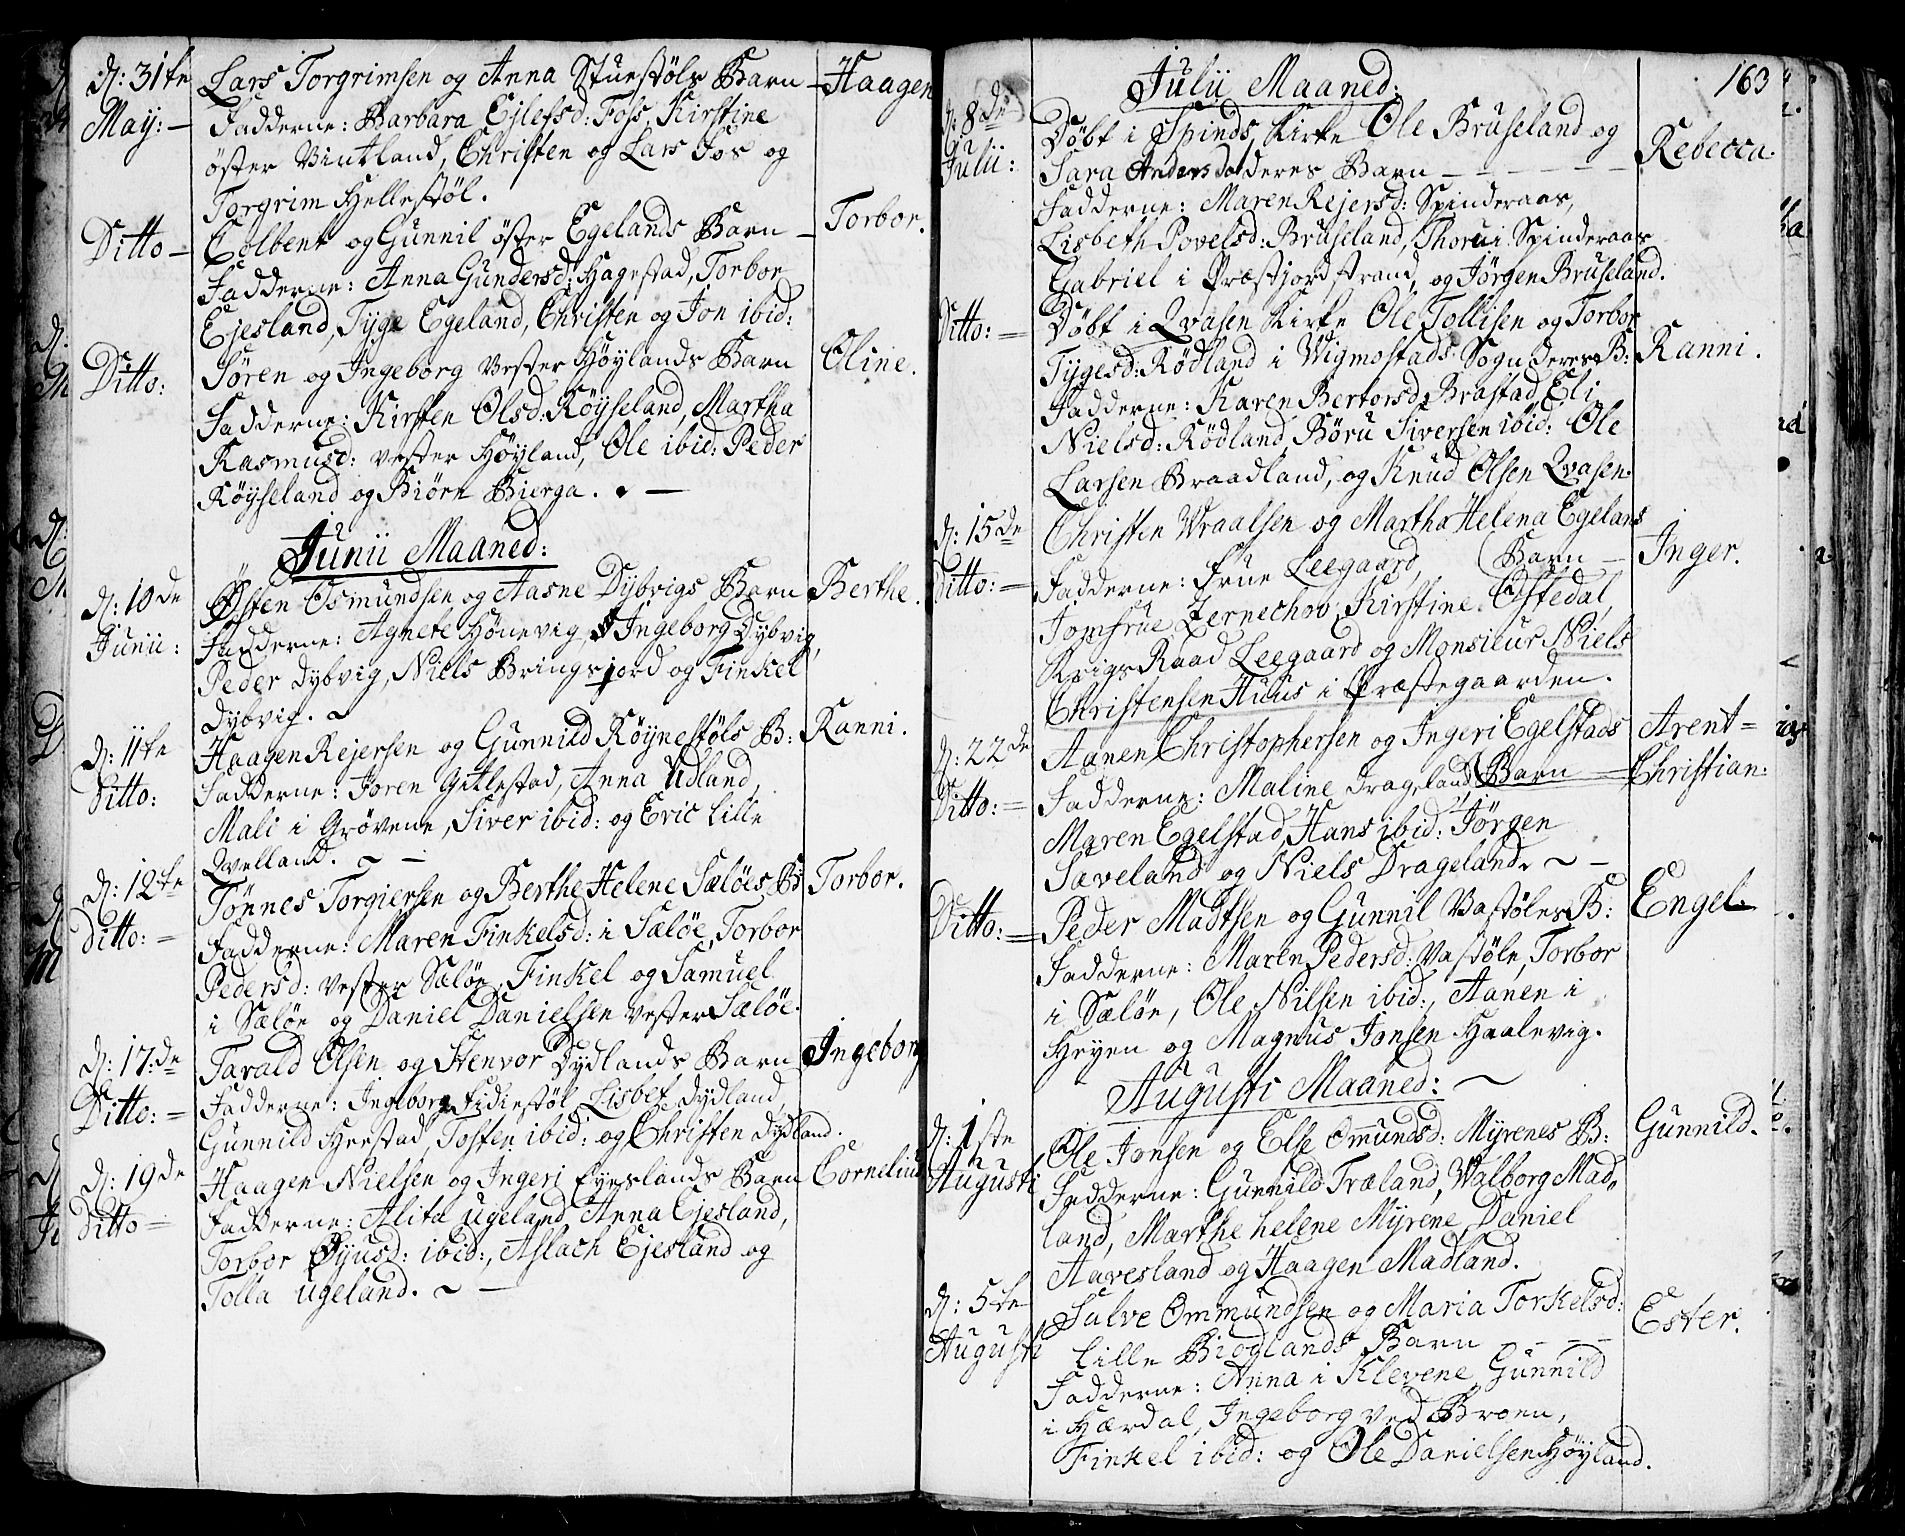 d: 31te Lars Torgrimsen og Anna Stuestøls Barn – Haagen
May: – Fadderne: Barbara Ejlefsd: Foss, Kirstine
øster Vintland, Christen og Lars Fos og
Torgrim Hellestøl.
Ditto – Colbent og Gunnil øster Egelands Barn – Torbor.
Fadderne: Anna Gundersd: Hagestad, Torbor
Ejesland, Tyge Egeland, Christen og Jon ibid:
Ditto: Sören og Ingeborg vester Høylands Barn Oline.
Fadderne: Kirsten Olsd: Röyseland, Martha
Rasmusd: vester Høyland, Ole ibid: Peder
Röyseland og Biörn Bierga. –
Junii Maaned:
d: 10de Østen Osmundsen og Aasne Dybvigs Barn Berthe.
Junii: Fadderne: Agnete Hönevig, Ingeborg Dybvig,
Peder Dybvig, Niels Bringsjord og Finkel
Dybvig.
d: 11te Haagen Rejersen og Gunnild Röynestøls B: Ranni.
Ditto: Fadderne: Joren Gitlestad, Anna Udland,
Mali i Grövene, Siver ibid: og Eric Lille
Qvelland. –
d: 12te Tönnes Torgiersen og Berthe Helene Sælöes B: Torbor.
ditto: = Fadderne: Maren Finkelsd: i Sælöe, Torbor
Pedersd: vester Sælöe, Finkel og Samuel
i Sælöe og Daniel Danielsen vester Sælöe.
d: 17:de Tarald Olsen og Stenvor Dydlands Barn Ingeborg
Ditto: = Fadderne: Ingeborg Lisbet Dydland,
Gunnild Herstad, Tosten ibid: og Christen Dydland.
d: 19de Haagen Nielsen og Ingeri Eyeslands Barn Cornelius
Ditto – Fadderne: Alita Ugeland, Anna Ejesland,
Torbor Øyusd: ibid:, Aslach Ejesland og
Tolla Ugeland. –
163
Julii Maaned:
d: 8de Döbt i Spinds Kirke Ole Bruseland og
Julii: Sara Andersd deres Barn – – – – – – Rebecca.
Fadderne: Maren Rejersd: Spinderaas,
Lisbeth Povelsd: Bruseland, Thorui Spinderaas
Gabriel i Præstjordstrand, og Jörgen Bruseland.
Ditto: = Döbt i Qvasen Kirke Ole Tollisen og Torbor
Tygesd: Rödland i Vigmostads Sogn deres B: Ranni.
Fadderne: Karen Bertorsd. Brastad, Eli
Nielsd: Rödland, Böru Siversen ibid: Ole
Larsen Braadland, og Knud Olsen Qvasen.
d: 15de Christen Wraalsen og Martha Helena Egelans
Ditto: = Fadderne: Frue Leegaard, (Barn – Inger.
Jomfrue Zernechov, Kirstine Ostedal,
Krigs Raad Leegaard og Monsieur Niels
Christensen Huus i Præstegaarden.
d: 22de Aanen Christophersen og Ingeri Egelstads Arent=
Ditto: = Fadderne: Maline Drageland, (Barn – Christian:
Maren Egelstad, Hans ibid: Jörgen
Saveland og Niels Drageland. ~ –
Ditto: = Peder Madtsen og Gunnil Vastöles B: Engel.
Fadderne: Maren Pedersd: Vastöle, Torbor
i Sælöe, Ole Nilsen ibid:, Aanen i
Heyen og Magnus Jonsen Haalevig.
Augusti Maaned: ~
d: 1ste Ole Jonsen og Else Omundsd: Myrenes B: Gunnild.
Augusti Fadderne: Gunnild Træland, Walborg Mad=
land, Marthe helene Myrene, Daniel
Aavesland og Haagen Madland.
d: 5te Salve Ommundsen og Maria Torkelsd: Ester.
Augusti Lille Birglands Barn – – – –
Fadderne: Anna i Klevene, Gunnild
i Hærdal, Ingeborg ved Broen,
Finkel ibid: og Ole Danielsen Höyland.